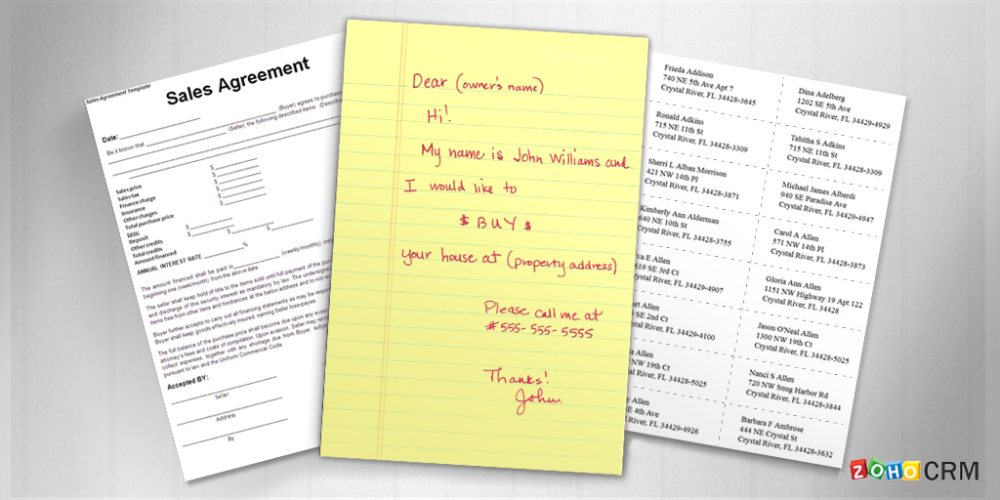 Sales Agreement Template
Sales Agreement
Date:
(Buyer) agrees to purchase
Be it known that
(Seller) the following described items
Sales price $
Sales tax $
Finance charge $
Insurance $
Other charges $
Total purchase price
LESS:
Deposit $
Other credits $
Total credits $
Amount financed
ANNUAL INTEREST RATE %
The amount financed shall be paid in (weekly/monthly)
beginning one (week/month) from the above date.
The seller shall keep hold of title to the items sold until full payment of the
and discharge of this security interest as mandatory by law. The
items free from other liens and hindrances at the below address and to not
Buyer further accepts to carry out all financing statements as may be
Buyer shall keep goods effectively insured, naming Seller loss-payee.
The full balance of the purchase price shall become due upon any
attorney's fees and costs of compilation. Upon evasion, Seller may
collect expenses, together with any shortage due from Buyer,
pursuant to law and the Uniform Commercial Code.
Accepted BY:
Seller
Address
By
Dear (owner's name)
Hi!
My name is John Williams and
I would like to
$ BUY $
your house at (property address)
Please call me at
#555-555-5555
Thanks!
John
Frieda Addison
740 NE 5th Ave Apt 7
Crystal River, FL 34428-3645
Ronald Adkins
715 NE 11th St
Crystal River, FL 34428-3309
Sherri L Alban Morrison
421 NW 14th Pl
Crystal River, FL 34428-3871
Kimberly Ann Alderman
640 NE 10th St
Crystal River, FL 34428-3755
va E Allen
619 SE 3rd Ct
stal River, FL 34429-4907
et Allen
SE 2nd Ct
al River, FL 34429-4100
Allen
W 19th Ct
River, FL 34428-5025
Allen
E 4th Ave
River, FL 34429-4926
Dina Adelberg
1202 SE 5th Ave
Crystal River, FL 34429-4929
Tabitha S Adkins
715 NE 11th St
Crystal River, FL 34428-3309
Michael James Alberdi
940 SE Paradise Ave
Crystal River, FL 34429-4947
Carol A Allen
571 NW 14th Pl
Crystal River, FL 34428-3873
Gloria Ann Allen
1151 NW Highway 19 Apt 122
Crystal River, FL 34428
Jason O'Neal Allen
1300 NW 19th Ct
Crystal River, FL 34428-5025
Nanci S Allen
720 NW Snug Harbor Rd
Crystal River, FL 34428-3844
Barbara F Ambrose
444 NE Crystal St
Crystal River, FL 34428-3632
ZOHO CRM